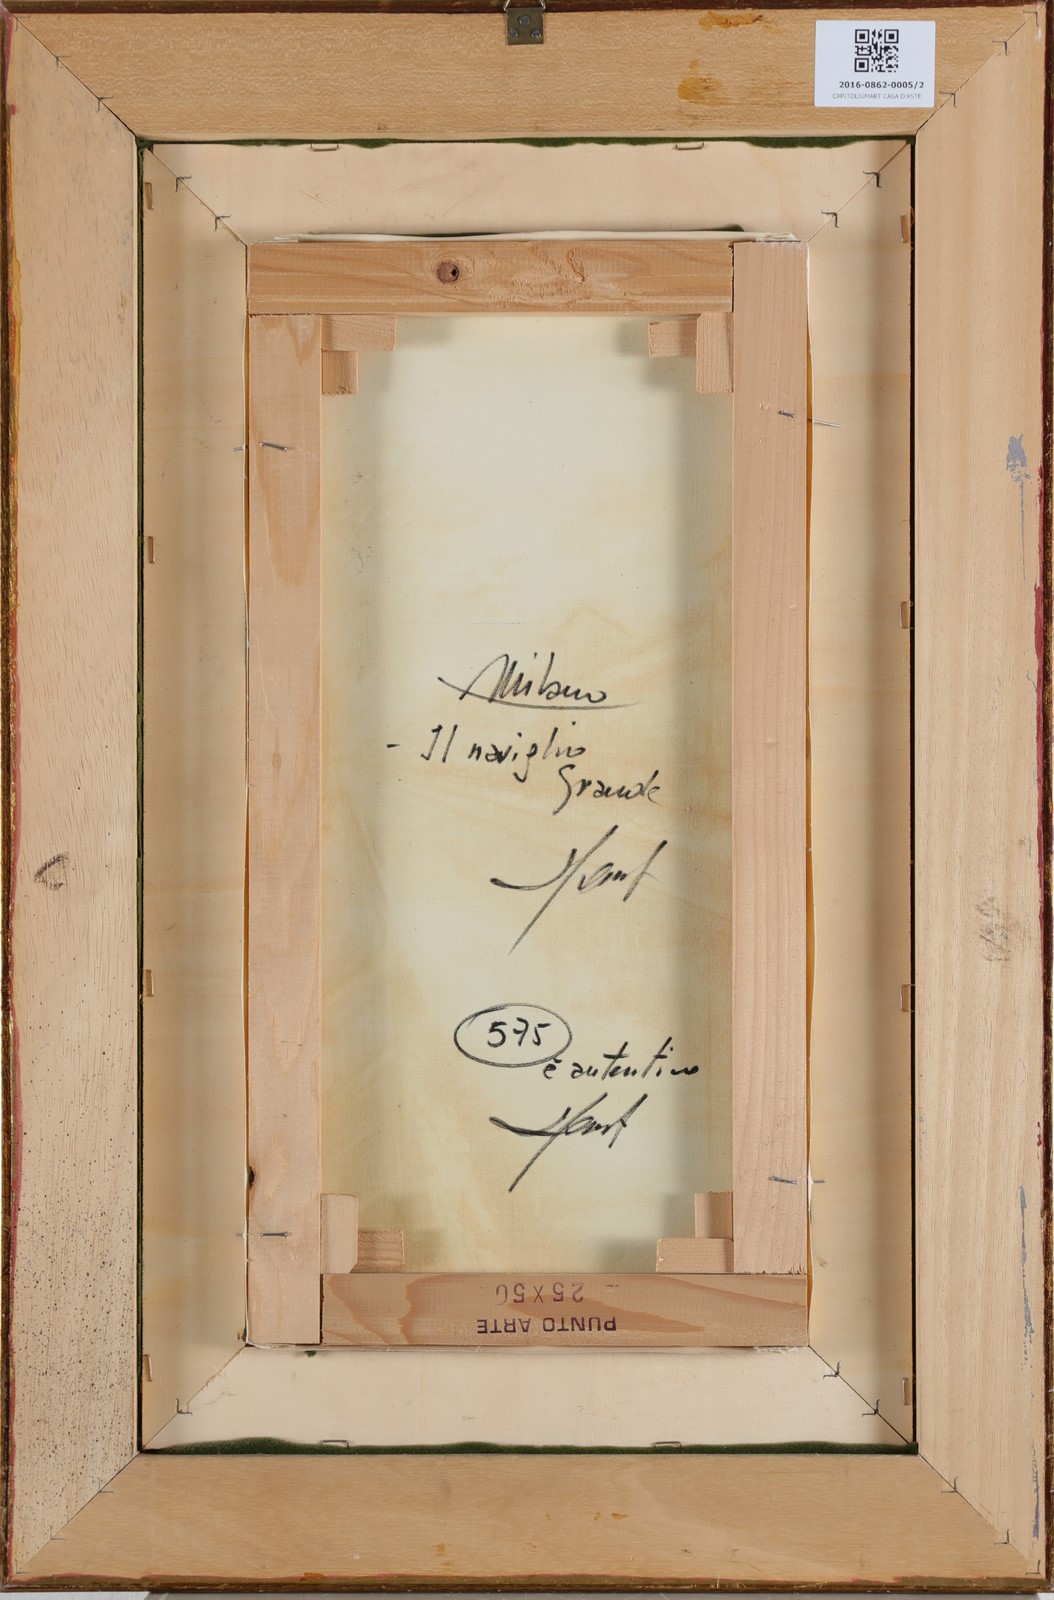 2016-0862-0005/2
CAPITOLIUMART CASA D'ASTE
Milano
- Il naviglio
Grande
575
è autentico
25 X 50
PUNTO ARTE